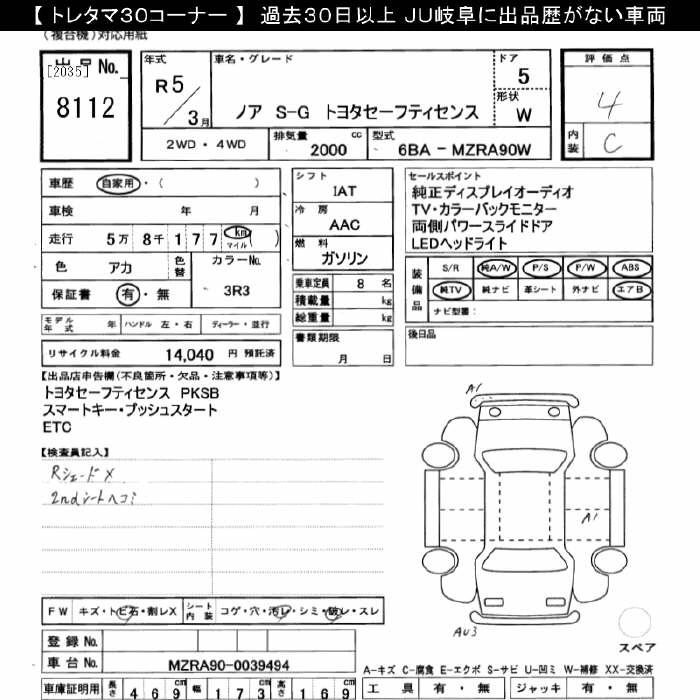 【 トレタマ30コーナー 】 過去30日以上 JU岐阜に出品歴がない車両
(複合機)対応用紙
出品No.
[2035]
8112
年式
R5/3月
車名・グレード
ノア S-G トヨタセーフティセンス
ドア
5
形状
W
2WD・4WD
排気量 cc
2000
型式
6BA - MZRA90W
評価点
4
内装
C
車歴 自家用・( )
車検 年 月
走行 5万 8千 177 km マイル ( )
色 アカ 色替
カラーNo.
3R3
保証書 有・無
モデル年式 年 ハンドル 左・右 ディーラー・並行
リサイクル料金 14,040 円 預託済
シフト
IAT
冷房
AAC
燃料
ガソリン
乗車定員 8 名
積載量 kg
総重量 kg
書類期限
月 日
セールスポイント
純正ディスプレイオーディオ
TV・カラーバックモニター
両側パワースライドドア
LEDヘッドライト
装備品
S/R 純A/W P/S P/W ABS
純TV 純ナビ 革シート 外ナビ エアB
ナビ型番:
後日品
【出品店申告欄(不良箇所・欠品・注意事項等)】
トヨタセーフティセンス PKSB
スマートキー・プッシュスタート
ETC
【検査員記入】
Rシェード X
2ndシートヘコミ
A1
A1
AU3
スペア
FW キズ・トビ石・割レX シート内装 コゲ・穴・汚レ・シミ・破レ・スレ
登録No.
車台No. MZRA90-0039494
車庫証明用 長さ 469cm 幅 173cm 高さ 189cm
A-キズ C-腐食 E-エクボ S-サビ U-凹ミ W-補修 XX-交換済
工具 有・無 ジャッキ 有・無